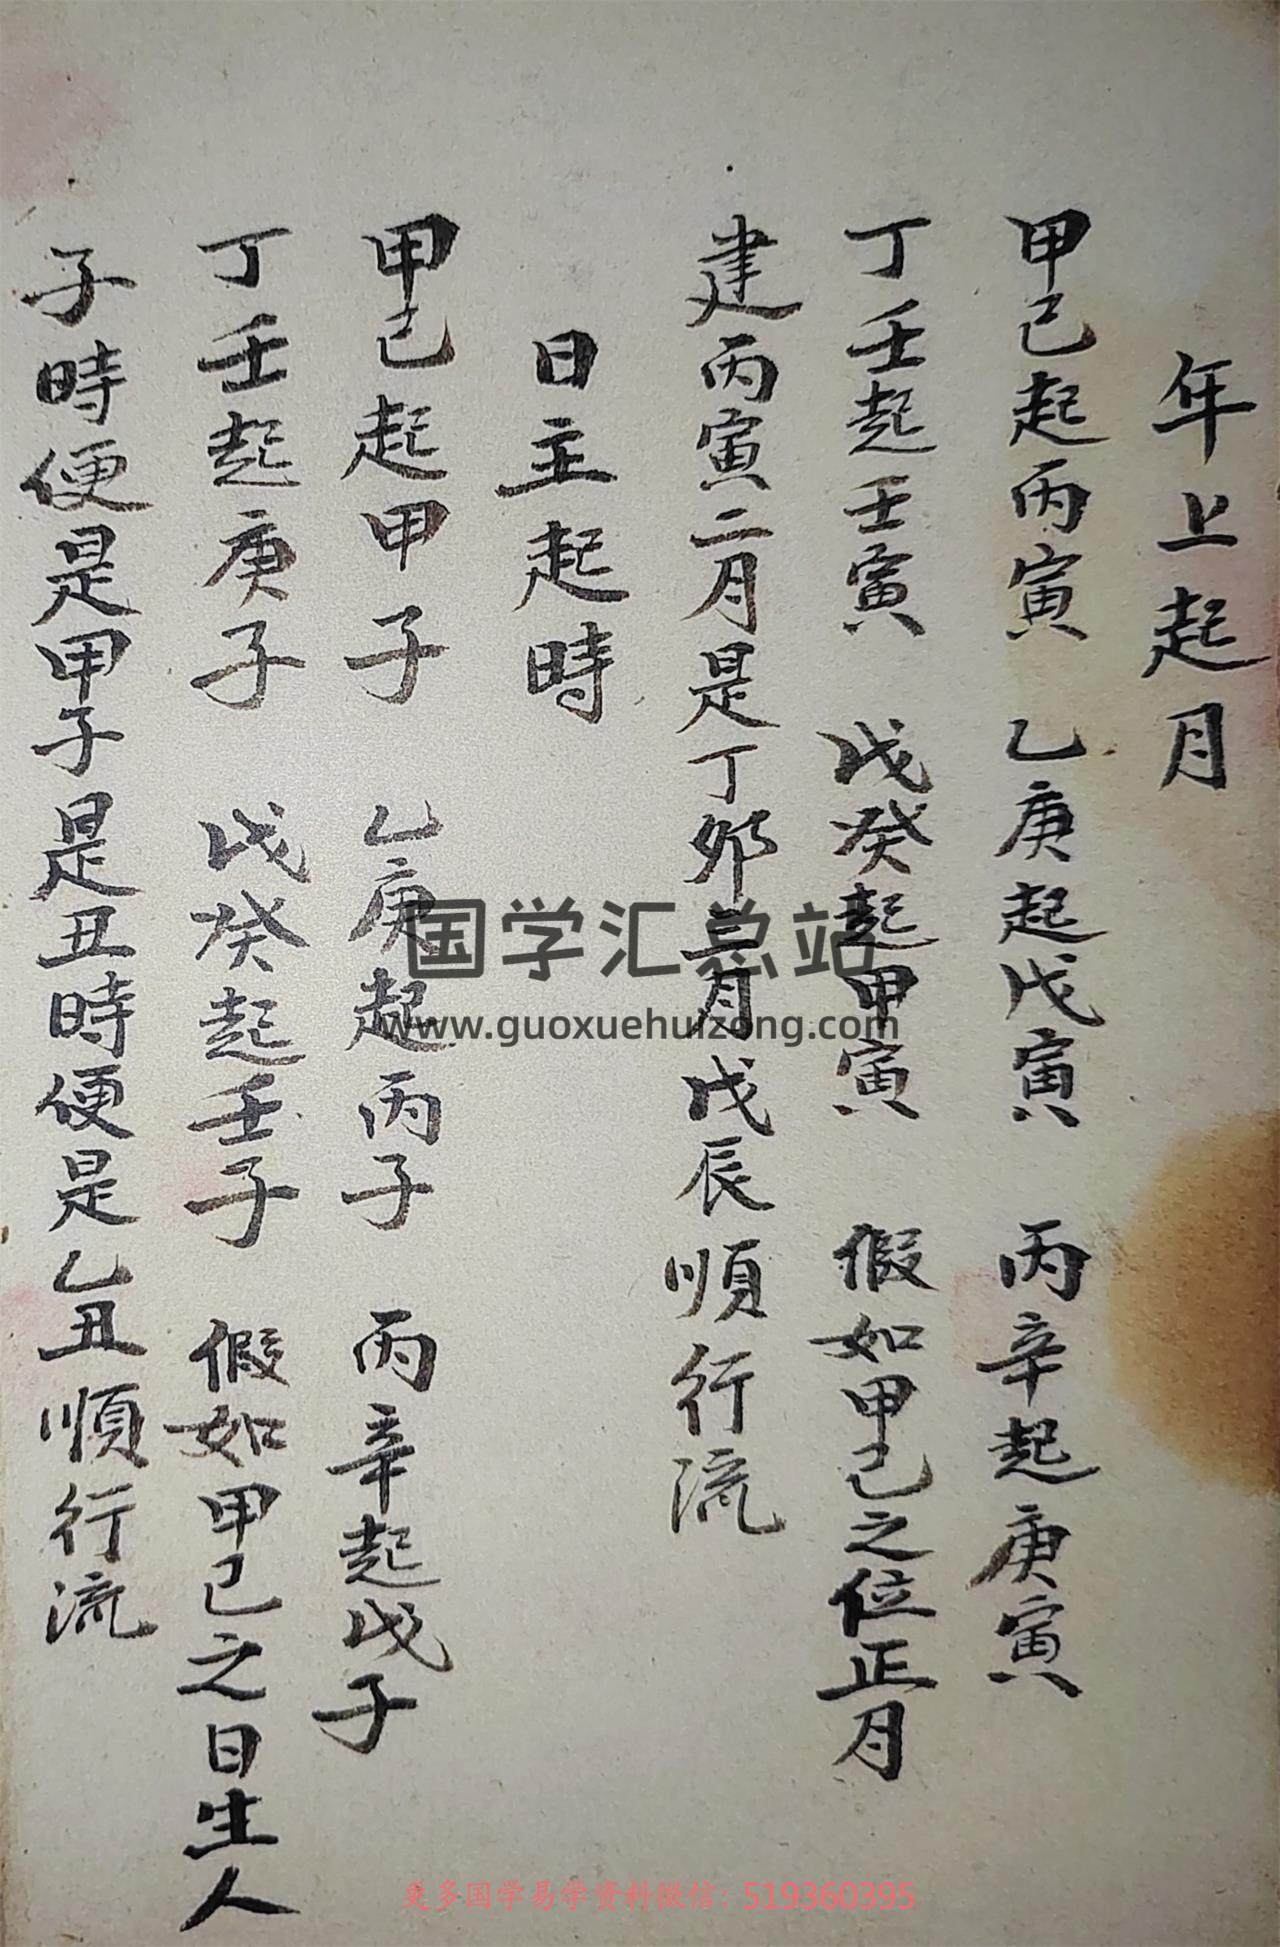 年上起月
甲己起丙寅 乙庚起戊寅 丙辛起庚寅
丁壬起壬寅 戊癸起甲寅 假如甲己之位正月
建丙寅二月是丁夘三月戊辰順行流
日主起時
甲己起甲子 乙庚起丙子 丙辛起戊子
丁壬起庚子 戊癸起壬子 假如甲己之日生人
子時便是甲子是丑時便是乙丑順行流
国学汇总站
www.guoxuehuizong.com
更多国学易学资料微信:519360395